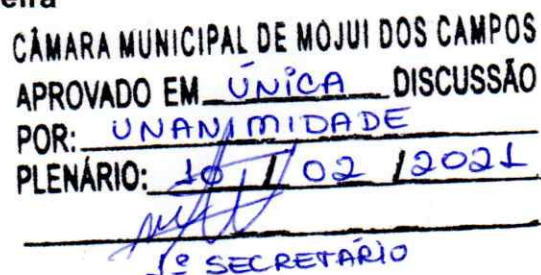 eira
CÂMARA MUNICIPAL DE MOJUI DOS CAMPOS
APROVADO EM ÚNICA DISCUSSÃO
POR: UNANIMIDADE
PLENÁRIO: 10 / 02 / 2021
1º SECRETÁRIO